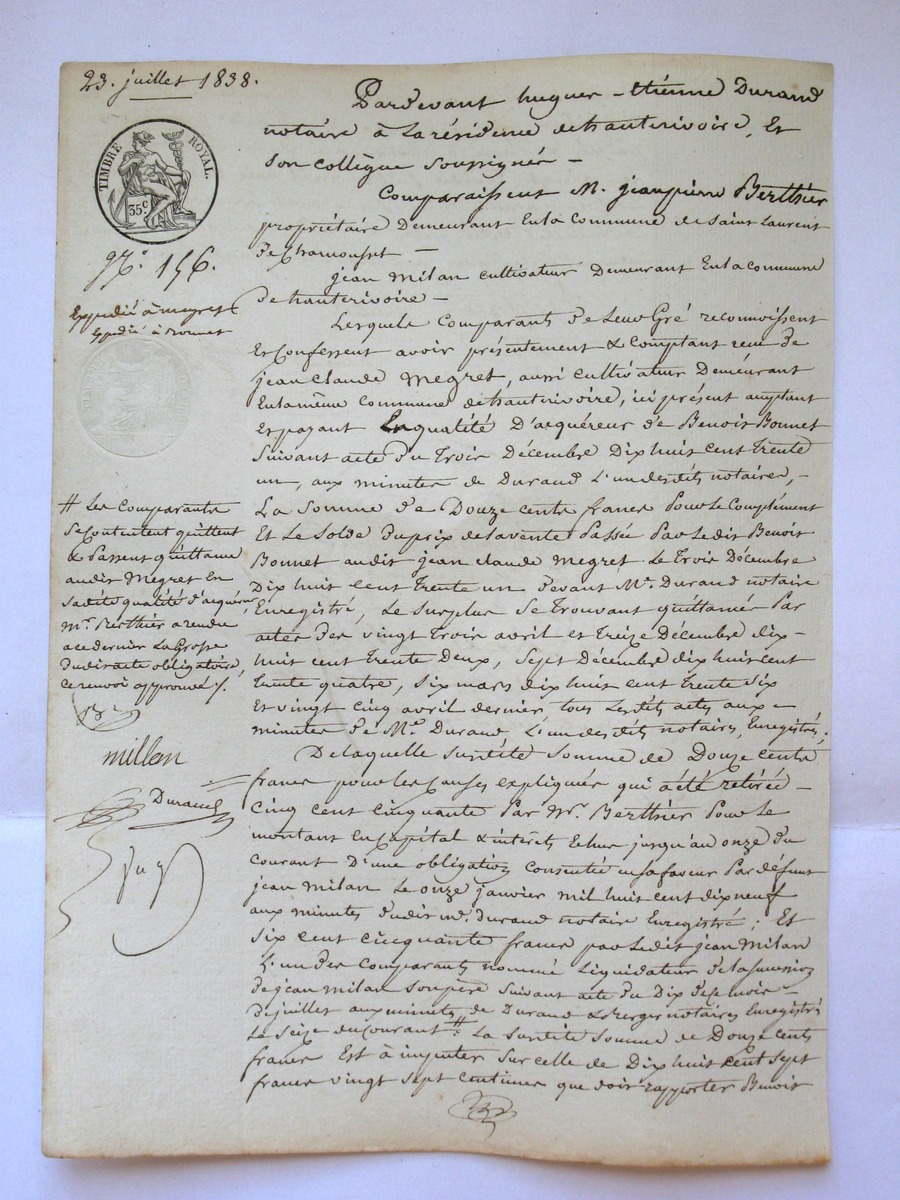 23. juillet 1838.
TIMBRE ROYAL.
35c
N.° 156.
Expedié à megret
Expedié à Bonnet
# Les Comparants
se Contentent quittent
& Passent quittance
audit Megret En
sadite qualité d'acquéreur,
mr. Berthier a rendu
a ce dernier La Grosse
dudit acte obligatoire,
ce renvoi approuvé ./.
millan
Durand
Pardevant hugues-étienne Durand
notaire à La résidence de hauterivoire, Et
son collègue soussignés —
Comparaissent M. jean pierre Berthier
propriétaire Demeurant En la Commune de Saint Laurent
de Chamousset —
jean Milan cultivateur Demeurant En la commune
de hauterivoire —
Lesquels Comparants de Leur Gré reconnoissent
Et Confessent avoir présentement & Comptant reçu de
jean claude Megret, aussi cultivateur Demeurant
En la même Commune de hauterivoire, ici présent acceptant
Et payant En qualité D'acquéreur de Benoit Bonnet
suivant acte du Trois Décembre Dix huit cent Trente
un, aux minutes de Durand L'un desdits notaires, -
La Somme de Douze cents francs Pour Le Complément
Et Le Solde du prix de la vente Passée Par Ledit Benoit
Bonnet audit jean claude Megret Le Trois Décembre
Dix huit cent Trente un devant Me. Durand notaire
Enregistré, Le Surplus Se Trouvant quittancé Par
actes des vingt Trois avril et Treize Décembre dix-
huit cent Trente Deux, Sept Décembre dix huit cent
trente quatre, Six mars dix huit cent Trente Six
Et vingt cinq avril dernier tous Lesdits actes aux -
minutes de Me. Durand L'un desdits notaires, Enregistrés;
De laquelle susdite Somme de Douze cents
francs pour les Causes expliquées qui a été retirée -
Cinq cent cinquante Par Mr. Berthier Pour Le
montant En Capital & intérêts Echus jusqu'au onze du
Courant D'une obligation Consentie en sa faveur Par défunt
jean Milan Le onze janvier mil huit cent dix neuf
aux minutes dudit me. durand notaire Enregistré; Et
six cent cinquante francs par Ledit jean Milan
L'un des Comparants nommé Liquidateur de la succession
de jean milan son père suivant acte du Dix de ce mois -
de juillet aux minutes de Durand & notaires Enregistré
Le Seize du Courant # La susdite Somme de Douze cents
francs Est à imputer Sur celle de Dix huit cent Sept
francs vingt sept centimes que doit rapporter Benoit